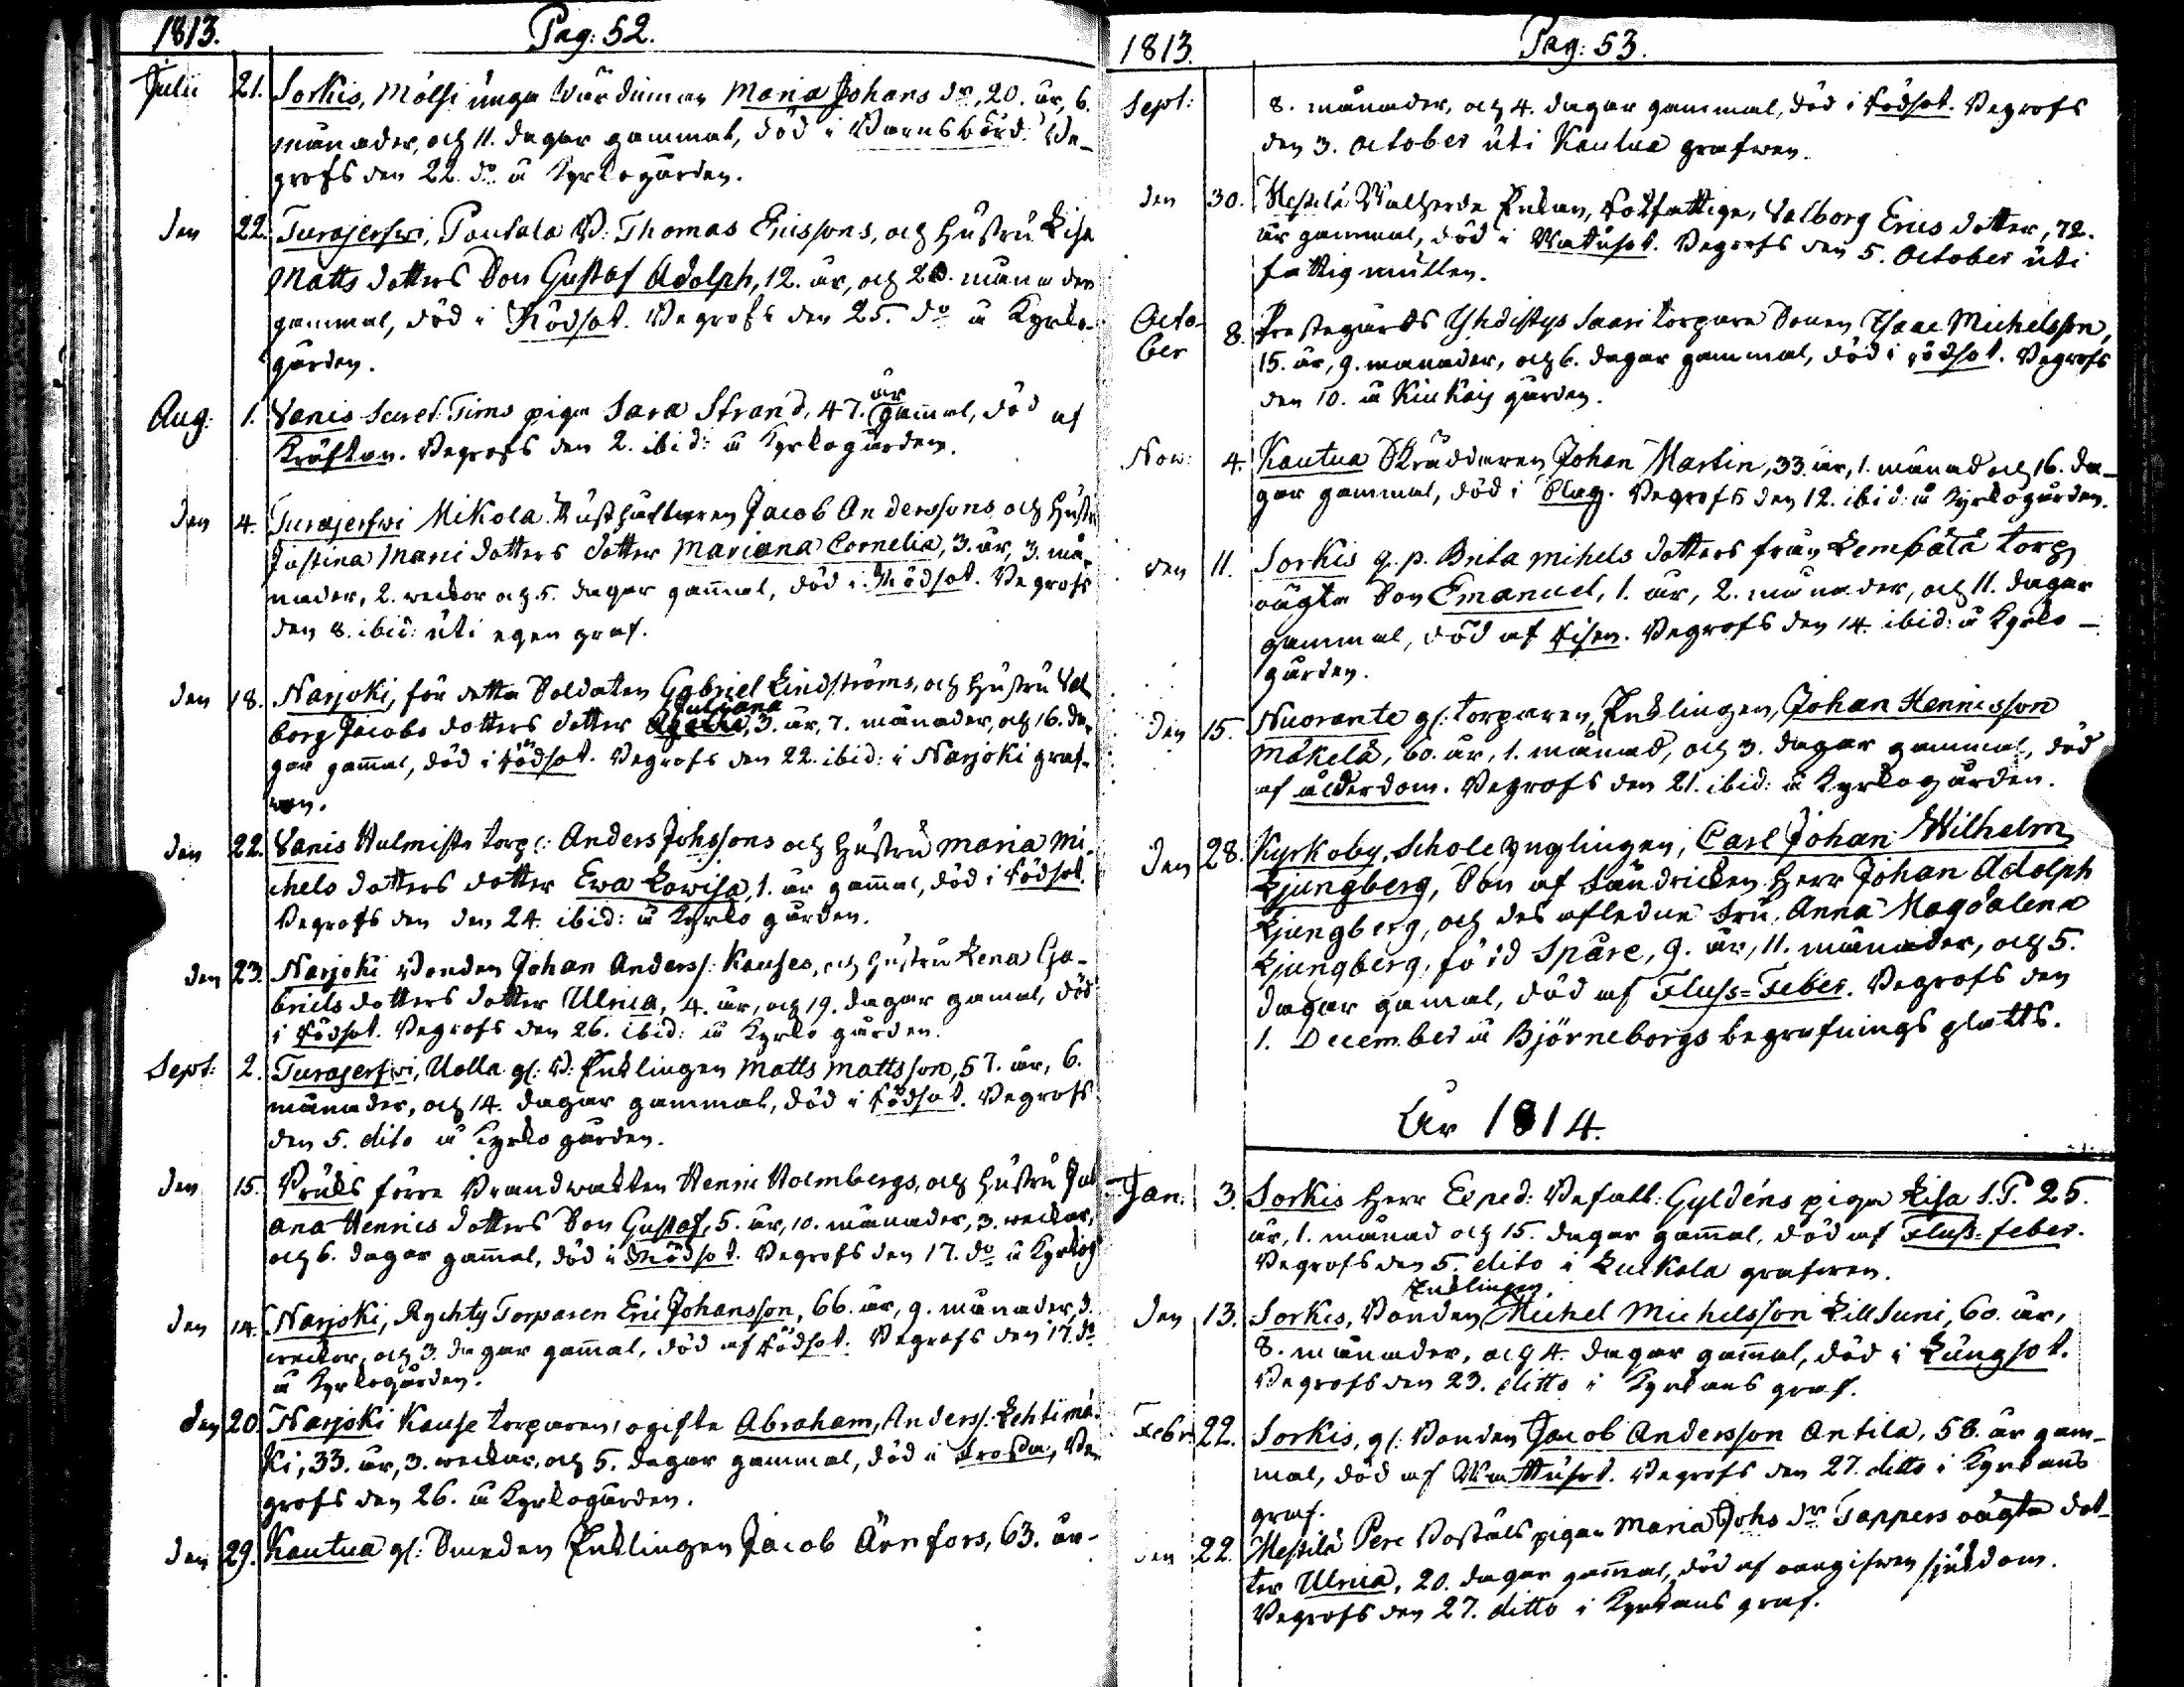 1813. Pag: 52.
Julii 21. Sorkis, Mölsi unga Wärdinnan Maria Johans dr, 20. år, 6.
månader, och 11. dagar gammal, död i Barnsbörd. Be-
grofs den 22. do å Kyrkogården.
den 22. Turajerfwi, Pautala B: Thomas Ericssons, och Hustru Lisa
Matts dotters Son Gustaf Adolph, 12. år, och 2. månader
gammal, död i Rödsot. Begrofs den 25. do å Kyrko-
gården.
Aug: 1. Vanis Saret Tims piga Sara Strand, 47. år gam̄al, död af
Kräftan. Begrofs den 2. ibid: å Kyrkogården.
den 4. Turajerfwi Mikola Rusthållaren Jacob Anderssons och Hustru
Justina Marci dotters dotter Mariana Cornelia, 3. år, 3. må-
nader, 2. weckor och 5. dagar gam̄al, död i Rödsot. Begrofs
den 8. ibid: uti egen graf.
den 18. Narjoki, för detta Soldaten Gabriel Lindströms, och Hustru Val
Juliana
borg Jacobs dotters dotter, 3. år, 7. månader, och 16. da-
gar gam̄al, död i Rödsot. Begrofs den 22. ibid: i Narjoki graf-
wen.
den 22. Vanis Halmisto torp: Anders Johssons och Hustru Maria Mi-
chels dotters dotter Ewa Lowisa, 1. år gam̄al, död i Rödsot.
Begrofs den den 24. ibid: å Kyrko gården.
den 23. Narjoki Bonden Johan Anderss: Kauses, och Hustru Lena Ga-
briels dotters dotter Ulrica, 4. år, och 19. dagar gamal, död
i Rödsot. Begrofs den 26. ibid: å Kyrko gården.
Sept: 2. Turajerfwi, Uolla gl: B: Enklingen Matts Mattsson, 57. år, 6.
månader, och 14. dagar gammal, död i Rödsot. Begrofs
den 5. dito å Kyrko gården.
den 15. Bruks förre Brandwakten Henric Holmbergs, och Hustru Juli
ana Henrics dotters Son Gustaf, 5. år, 10. månader, 3. weckor,
och 6. dagar gam̄al, död i Rödsot. Begrofs den 17. do å Kyrkog
den 14. Narjoki, Rychty Torparen Eric Johansson, 66. år, 9. månader, 3.
weckor, och 3. dagar gam̄al, död af Rödsot. Begrofs den 17. do
å Kyrkogården.
den 20. Narjoki Kause torparen, ogifte Abraham, Anderss: Lehtimä-
ki, 33. år, 3. weckor, och 5. dagar gammal, död i Frossa, Be-
grofs den 26. å Kyrkogården.
den 29. Kautua gl: Smeden Enklingen Jacob Ärnfors, 63. år
1813. Pag: 53.
Sept: 8. månader, och 4. dagar gammal, död i Rödsot. Begrofs
den 3. October uti Kautua grafwen.
den 30. Messilä Walherda Enkan, Rotfattige, Valborg Erics dotter, 72.
år gammal, död i Watusot. Begrofs den 5. October uti
fattigmullen.
Octo-
ber 8. Prestegårds Yhdistys Saari torpare Sonen Isaac Michelsson,
15. år, 9. månader, och 6. dagar gammal, död i rödsot. Begrofs
den 10. å Kiukais gården.
Nov: 4. Kautua Skräddaren Johan Martin, 33. år, 1. månad och 16. da-
gar gammal, död i Slag. Begrofs den 12. ibid: å Kyrkogården.
den 11. Sorkis q. p. Brita Mihels dotters från Lempätä torp
oägta Son Emanuel, 1. år, 2. månader, och 11. dagar
gammal, död af Risen. Begrofs den 14. ibid: å Kyrko-
gården.
den 15. Nuoranto gl: torparen, Enklingen, Johan Henricsson
Mäkelä, 60. år, 1. månad, och 3. dagar gammal, död
af ålderdom. Begrofs den 21. ibid: å Kyrkogården.
den 28. Kyrkoby, Schole ynglingen, Carl Johan Wilhelm
Ljungberg, Son af Fändricken Herr Johan Adolph
Ljungberg, och des afledne Fru, Anna Magdalena
Ljungberg, född Spåre, 9. år, 11. månader, och 5.
dagar gamal, död af Fluss=Feber. Begrofs den
1. December å Björneborgs begrafnings platts.
År 1814.
Jan: 3. Sorkis Herr Exped: Befall: Gyldéns piga Lisa S.P. 25.
år, 1. månad och 15. dagar gam̄al, död af Fluss=feber.
Begrofs den 5. dito i Luikala grafwen.
Enklingen
den 13. Sorkis, Bonden Michel Michelsson LillSuni, 60. år,
8. månader, och 4. dagar gam̄al, död i Lungsot.
Begrofs den 23. ditto i Kyrkans graf.
Febr: 22. Sorkis, gl: Bonden Jacob Andersson Antila, 58. år gam-
mal, död af Wattusot. Begrofs den 27. ditto i Kyrkans
graf.
den 22. Messilä Pere Boställs pigan Maria Johs dr Tappers oägta dot-
ter Ulrica, 20. dagar gam̄al, död af oangifwen sjukdom.
Begrofs den 27. ditto i Kyrkans graf.